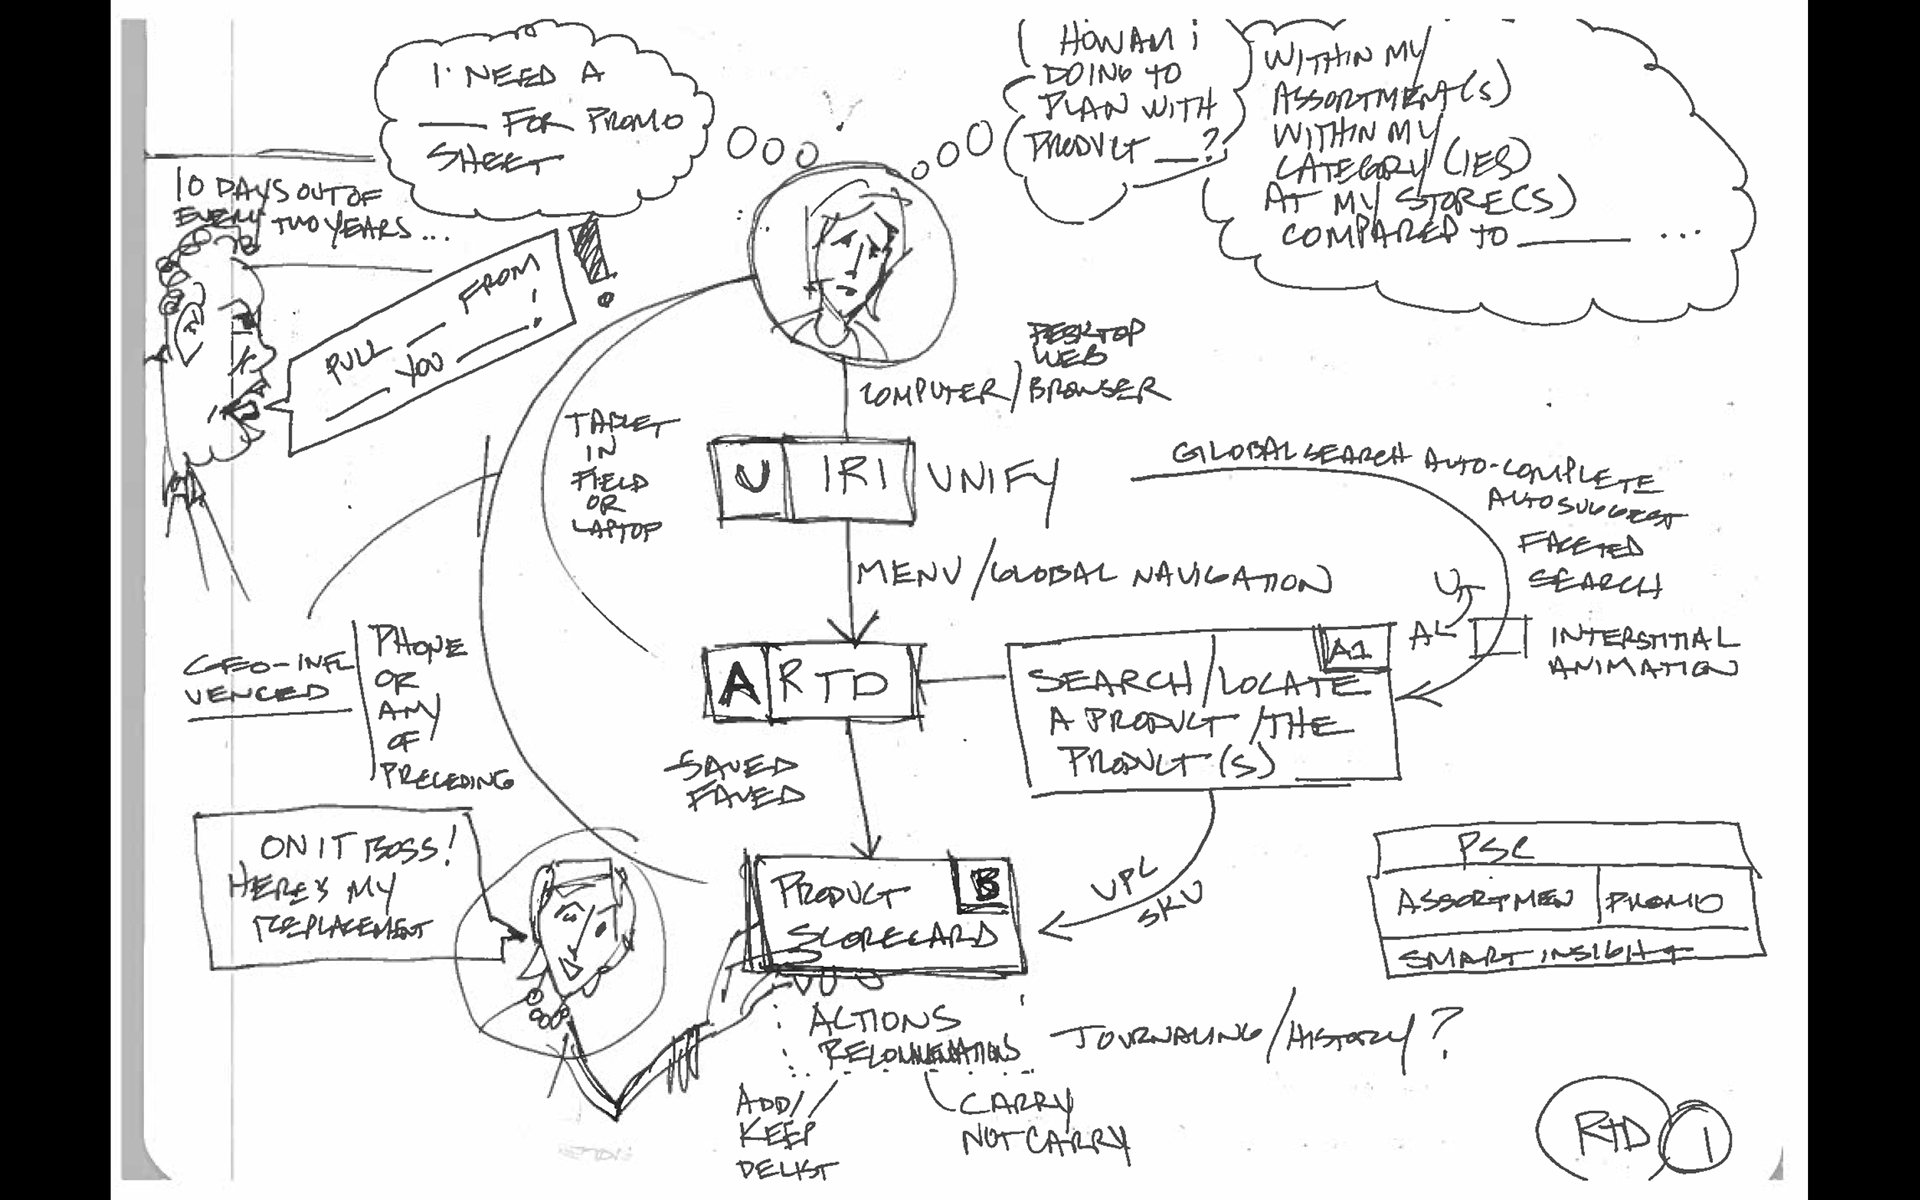 I NEED A
___ FOR PROMO
SHEET
HOW AM i
DOING TO
PLAN WITH
PRODUCT ___?
WITHIN MY
ASSORTMENT(S)
WITHIN MY
CATEGORY/(IES)
AT MY STORE(S)
COMPARED TO ______ ...
10 DAYS OUT OF
EVERY TWO YEARS...
PULL ___ FROM
___ YOU ___!
DESKTOP
WEB
COMPUTER/BROWSER
TABLET
IN
FIELD
OR
LAPTOP
U IRI UNIFY
GLOBAL SEARCH AUTO-COMPLETE
AUTOSUGGEST
FACETED
SEARCH
MENU/GLOBAL NAVIGATION
INTERSTITIAL
ANIMATION
GEO-INFL
UENCED
PHONE
OR
ANY
OF
PRECEDING
A RTD
A1
SEARCH/LOCATE
A PRODUCT/THE
PRODUCT(S) ___
SAVED
FAVED
ON IT BOSS!
HERE'S MY
REPLACEMENT
PRODUCT B
SCORECARD
UPC
SKU
PSC
ASSORTMEN PROMO
SMART INSIGHT
ACTIONS
RECOMMENDATIONS
JOURNALING/HISTORY?
ADD/
KEEP
DELIST
CARRY
NOT CARRY
RTD 1